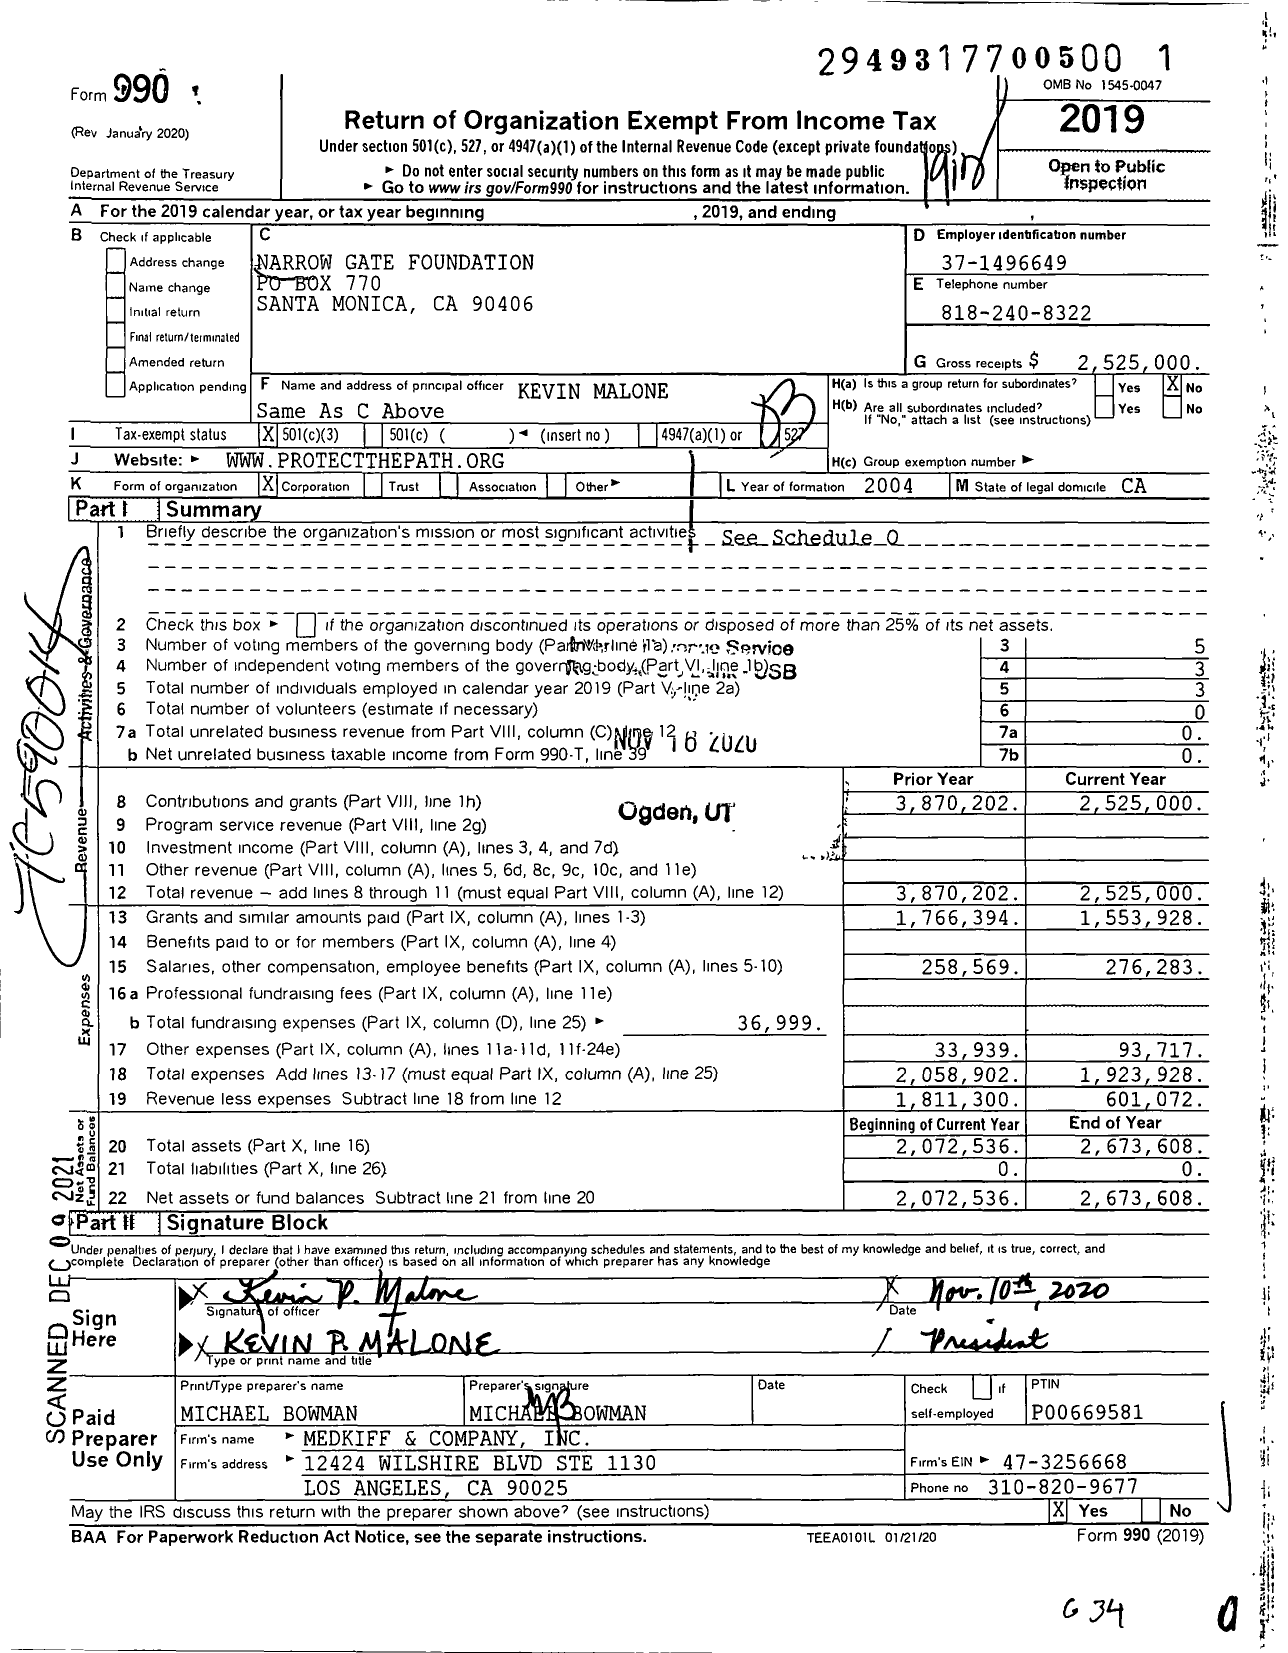 29493177 00500 1
Form 990
OMB No 1545-0047
(Rev January 2020)
Return of Organization Exempt From Income Tax
2019
Under section 501(c), 527, or 4947(a)(1) of the Internal Revenue Code (except private foundations)
Department of the Treasury
Internal Revenue Service
► Do not enter social security numbers on this form as it may be made public
► Go to www irs gov/Form990 for instructions and the latest information.
Open to Public
Inspection
A For the 2019 calendar year, or tax year beginning , 2019, and ending ,
B Check if applicable
Address change
Name change
Initial return
Final return/terminated
Amended return
Application pending
C
NARROW GATE FOUNDATION
PO BOX 770
SANTA MONICA, CA 90406
D Employer identification number
37-1496649
E Telephone number
818-240-8322
G Gross receipts $ 2,525,000.
F Name and address of principal officer KEVIN MALONE
Same As C Above
H(a) Is this a group return for subordinates? Yes X No
H(b) Are all subordinates included? Yes No
If "No," attach a list (see instructions)
I Tax-exempt status X 501(c)(3) 501(c) ( )◄ (insert no ) 4947(a)(1) or 527
J Website: ► WWW.PROTECTTHEPATH.ORG
H(c) Group exemption number ►
K Form of organization X Corporation Trust Association Other► L Year of formation 2004 M State of legal domicile CA
Part I Summary
1 Briefly describe the organization's mission or most significant activities See Schedule O
2 Check this box ► if the organization discontinued its operations or disposed of more than 25% of its net assets.
3 Number of voting members of the governing body (Part VI, line 1a) 3 5
Service
4 Number of independent voting members of the governing body (Part VI, line 1b) 4 3
USB
5 Total number of individuals employed in calendar year 2019 (Part V, line 2a) 5 3
6 Total number of volunteers (estimate if necessary) 6 0
7a Total unrelated business revenue from Part VIII, column (C), line 12 7a 0.
NOV 16 2020
b Net unrelated business taxable income from Form 990-T, line 39 7b 0.
Prior Year Current Year
8 Contributions and grants (Part VIII, line 1h) 3,870,202. 2,525,000.
Ogden, UT
9 Program service revenue (Part VIII, line 2g)
10 Investment income (Part VIII, column (A), lines 3, 4, and 7d)
11 Other revenue (Part VIII, column (A), lines 5, 6d, 8c, 9c, 10c, and 11e)
12 Total revenue – add lines 8 through 11 (must equal Part VIII, column (A), line 12) 3,870,202. 2,525,000.
13 Grants and similar amounts paid (Part IX, column (A), lines 1-3) 1,766,394. 1,553,928.
14 Benefits paid to or for members (Part IX, column (A), line 4)
15 Salaries, other compensation, employee benefits (Part IX, column (A), lines 5-10) 258,569. 276,283.
16a Professional fundraising fees (Part IX, column (A), line 11e)
b Total fundraising expenses (Part IX, column (D), line 25) ► 36,999.
17 Other expenses (Part IX, column (A), lines 11a-11d, 11f-24e) 33,939. 93,717.
18 Total expenses Add lines 13-17 (must equal Part IX, column (A), line 25) 2,058,902. 1,923,928.
19 Revenue less expenses Subtract line 18 from line 12 1,811,300. 601,072.
Beginning of Current Year End of Year
20 Total assets (Part X, line 16) 2,072,536. 2,673,608.
21 Total liabilities (Part X, line 26) 0. 0.
22 Net assets or fund balances Subtract line 21 from line 20 2,072,536. 2,673,608.
Activities & Governance
Revenue
Expenses
Net Assets or
Fund Balances
SCANNED DEC 09 2021
Part II Signature Block
Under penalties of perjury, I declare that I have examined this return, including accompanying schedules and statements, and to the best of my knowledge and belief, it is true, correct, and
complete Declaration of preparer (other than officer) is based on all information of which preparer has any knowledge
Sign
Here
X Kevin P. Malone X Nov. 10th, 2020
Signature of officer Date
X KEVIN P. MALONE / President
Type or print name and title
Paid
Preparer
Use Only
Print/Type preparer's name Preparer's signature Date Check if PTIN
MICHAEL BOWMAN MICHAEL BOWMAN self-employed P00669581
Firm's name ► MEDKIFF & COMPANY, INC.
Firm's address ► 12424 WILSHIRE BLVD STE 1130 Firm's EIN ► 47-3256668
LOS ANGELES, CA 90025 Phone no 310-820-9677
May the IRS discuss this return with the preparer shown above? (see instructions) X Yes No
BAA For Paperwork Reduction Act Notice, see the separate instructions. TEEA0101L 01/21/20 Form 990 (2019)
G 34